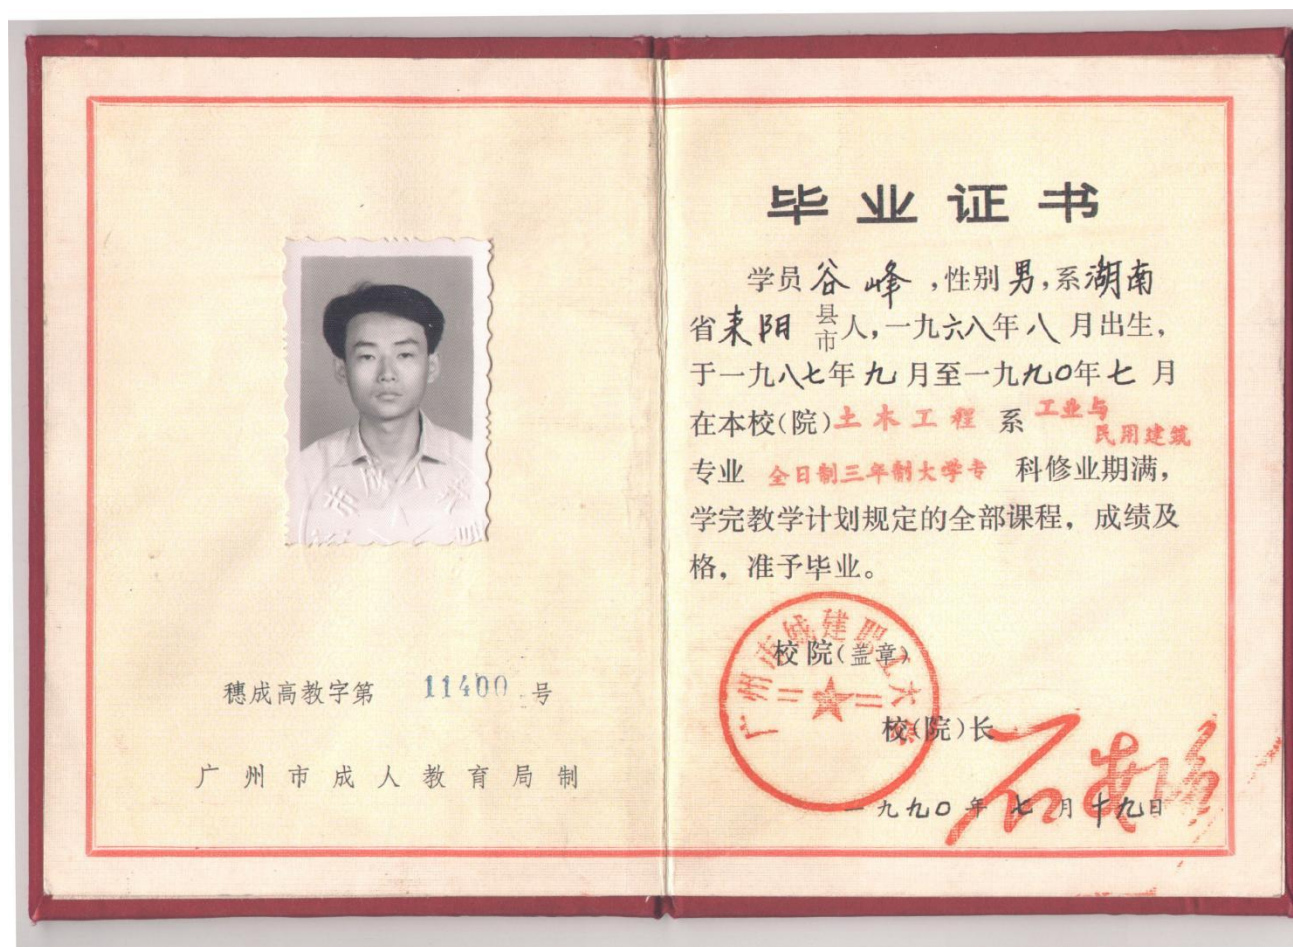 穗成高教字第 11400 号
广州市成人教育局制
毕业证书
学员谷峰,性别男,系湖南
省耒阳县市人,一九六八年八月出生,
于一九八七年九月至一九九〇年七月
在本校(院)土木工程系工业与民用建筑
专业 全日制三年制大学专 科修业期满,
学完教学计划规定的全部课程,成绩及
格,准予毕业。
广州市城建职工大学
校院(盖章)
校(院)长
一九九〇年七月十九日